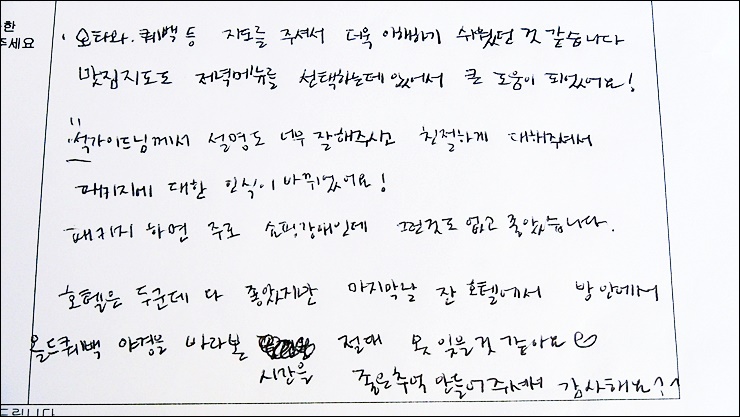 한
주세요
· 오타와. 퀘백 등 지도를 주셔서 더욱 이해하기 쉬웠던 것 같습니다
맛집지도도 저녁메뉴를 선택하는데 있어서 큰 도움이 되었어요!
"석가이드님께서 설명도 너무 잘해주시고 친절하게 대해주셔서
패키지에 대한 인식이 바뀌었어요!
패키지 하면 주로 쇼핑강매인데 그런것도 없고 좋았습니다.
호텔은 두군데 다 좋았지만 마지막날 잔 호텔에서 방 안에서
올드퀘백 야경을 바라본 절대 못 잊을것 같아요
시간을 좋은추억 만들어주셔서 감사해요^^
드립니다